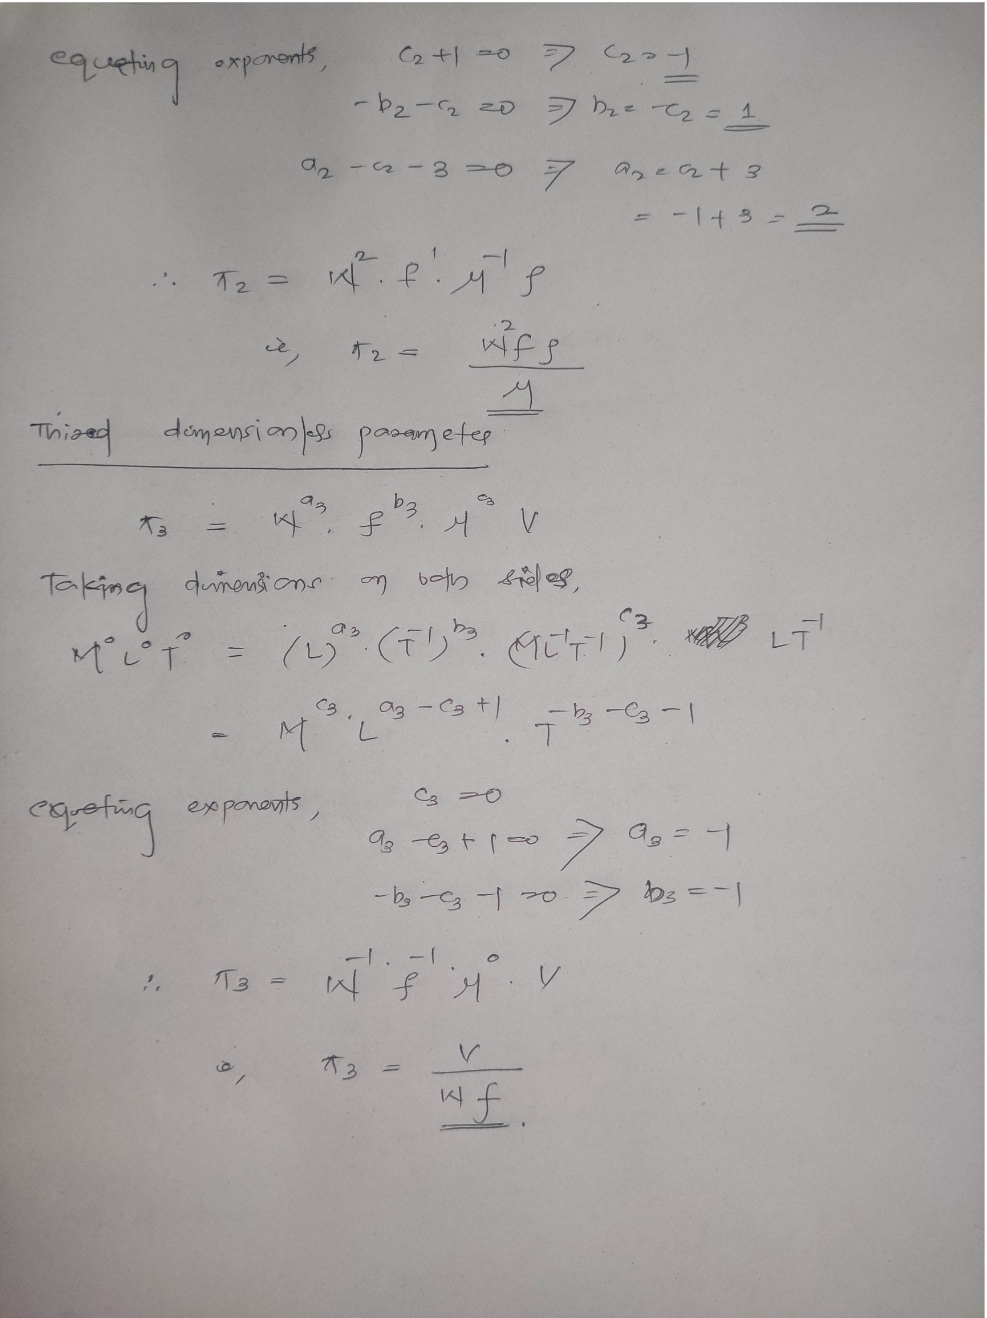 equating exponents, c₂ + 1 = 0 ⇒ c₂ = -1
-b₂ - c₂ = 0 ⇒ b₂ = -c₂ = 1
a₂ - c₂ - 3 = 0 ⇒ a₂ = c₂ + 3
= -1 + 3 = 2
∴ π₂ = W² . f¹ . μ⁻¹ ρ
ie, π₂ = W² f ρ / μ
Third dimensionless parameter
π₃ = W^a₃ . f^b₃ . μ^c₃ V
Taking dimensions on both sides,
M⁰ L⁰ T⁰ = (L)^a₃ . (T⁻¹)^b₃ . (ML⁻¹T⁻¹)^c₃ . LT⁻¹
= M^c₃ . L^a₃ - c₃ + 1 . T^-b₃ - c₃ - 1
equating exponents, c₃ = 0
a₃ - c₃ + 1 = 0 ⇒ a₃ = -1
-b₃ - c₃ - 1 = 0 ⇒ b₃ = -1
∴ π₃ = W⁻¹ . f⁻¹ . μ⁰ . V
ie, π₃ = V / W f .